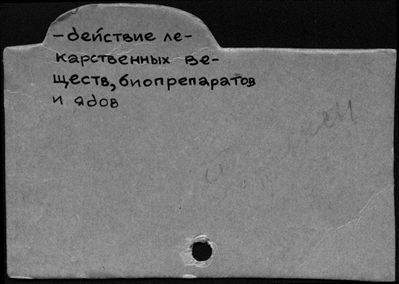 -действие ле-
карственных ве-
ществ, биопрепаратов
и ядов